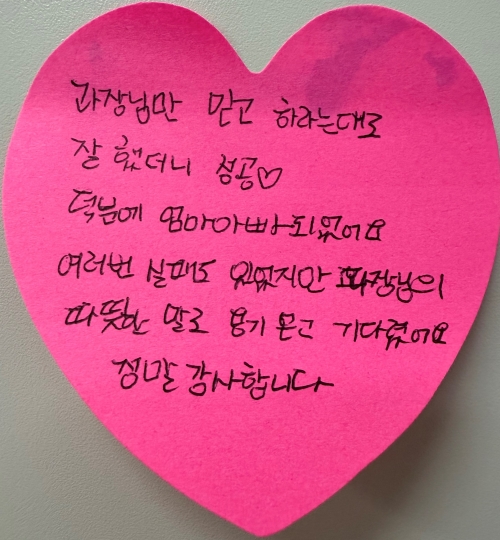 과장님만 믿고 하라는대로
잘 했더니 성공♡
덕분에 엄마아빠되었어요
여러번 실패도 있었지만 과장님의
따뜻한 말로 용기 얻고 기다렸어요
정말 감사합니다